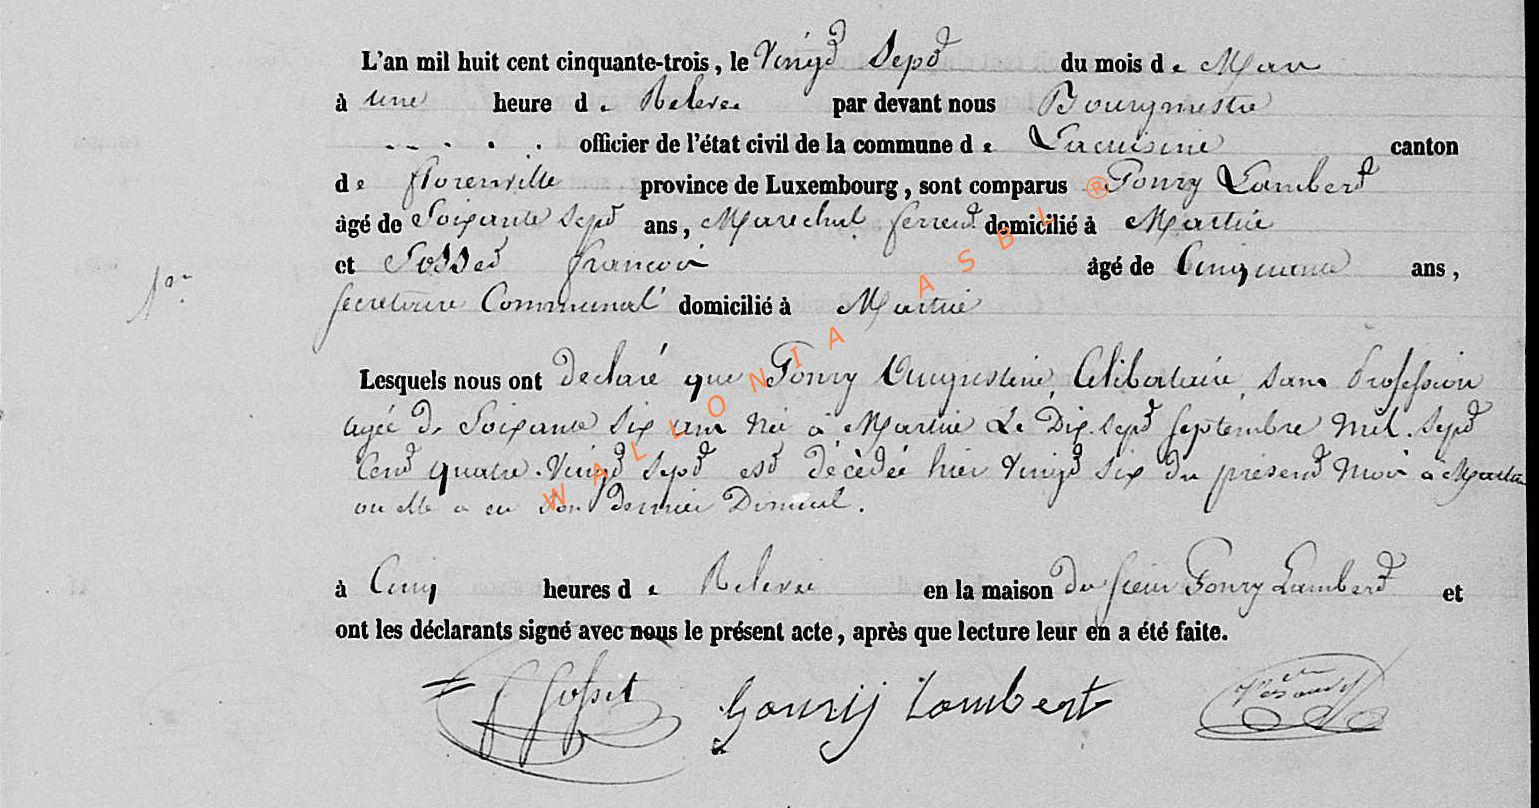 L'an mil huit cent cinquante-trois, le Vingt Sept du mois de Mars
à une heure de Relevée par devant nous Bourgmestre
- - . . . . officier de l'état civil de la commune de Lacuisine canton
de florenville province de Luxembourg, sont comparus Gonry Lambert
âgé de Soixante Sept ans, Marechal ferrent domicilié à Martué
et Gosset francois âgé de Cinquante ans,
secretaire Communal domicilié à Martué
Lesquels nous ont declaré que Gonry Augustine Celibataire sans Profession
agée de Soixante six ans née à Martué Le Dix sept septembre mil sept
Cent quatre Vingt sept est décédée hier Vingt six du présent mois a Martué
ou elle a eu son dernier Domicil.
à Cinq heures de Relevée en la maison du sieur Gonry Lambert et
ont les déclarants signé avec nous le présent acte, après que lecture leur en a été faite.
Gosset Gourij Lambert
WALLONIA ASBL ®